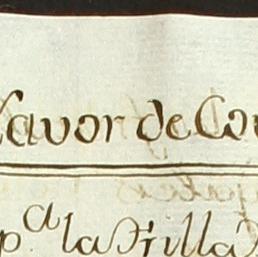 favor de Cou
p.ª la Villa